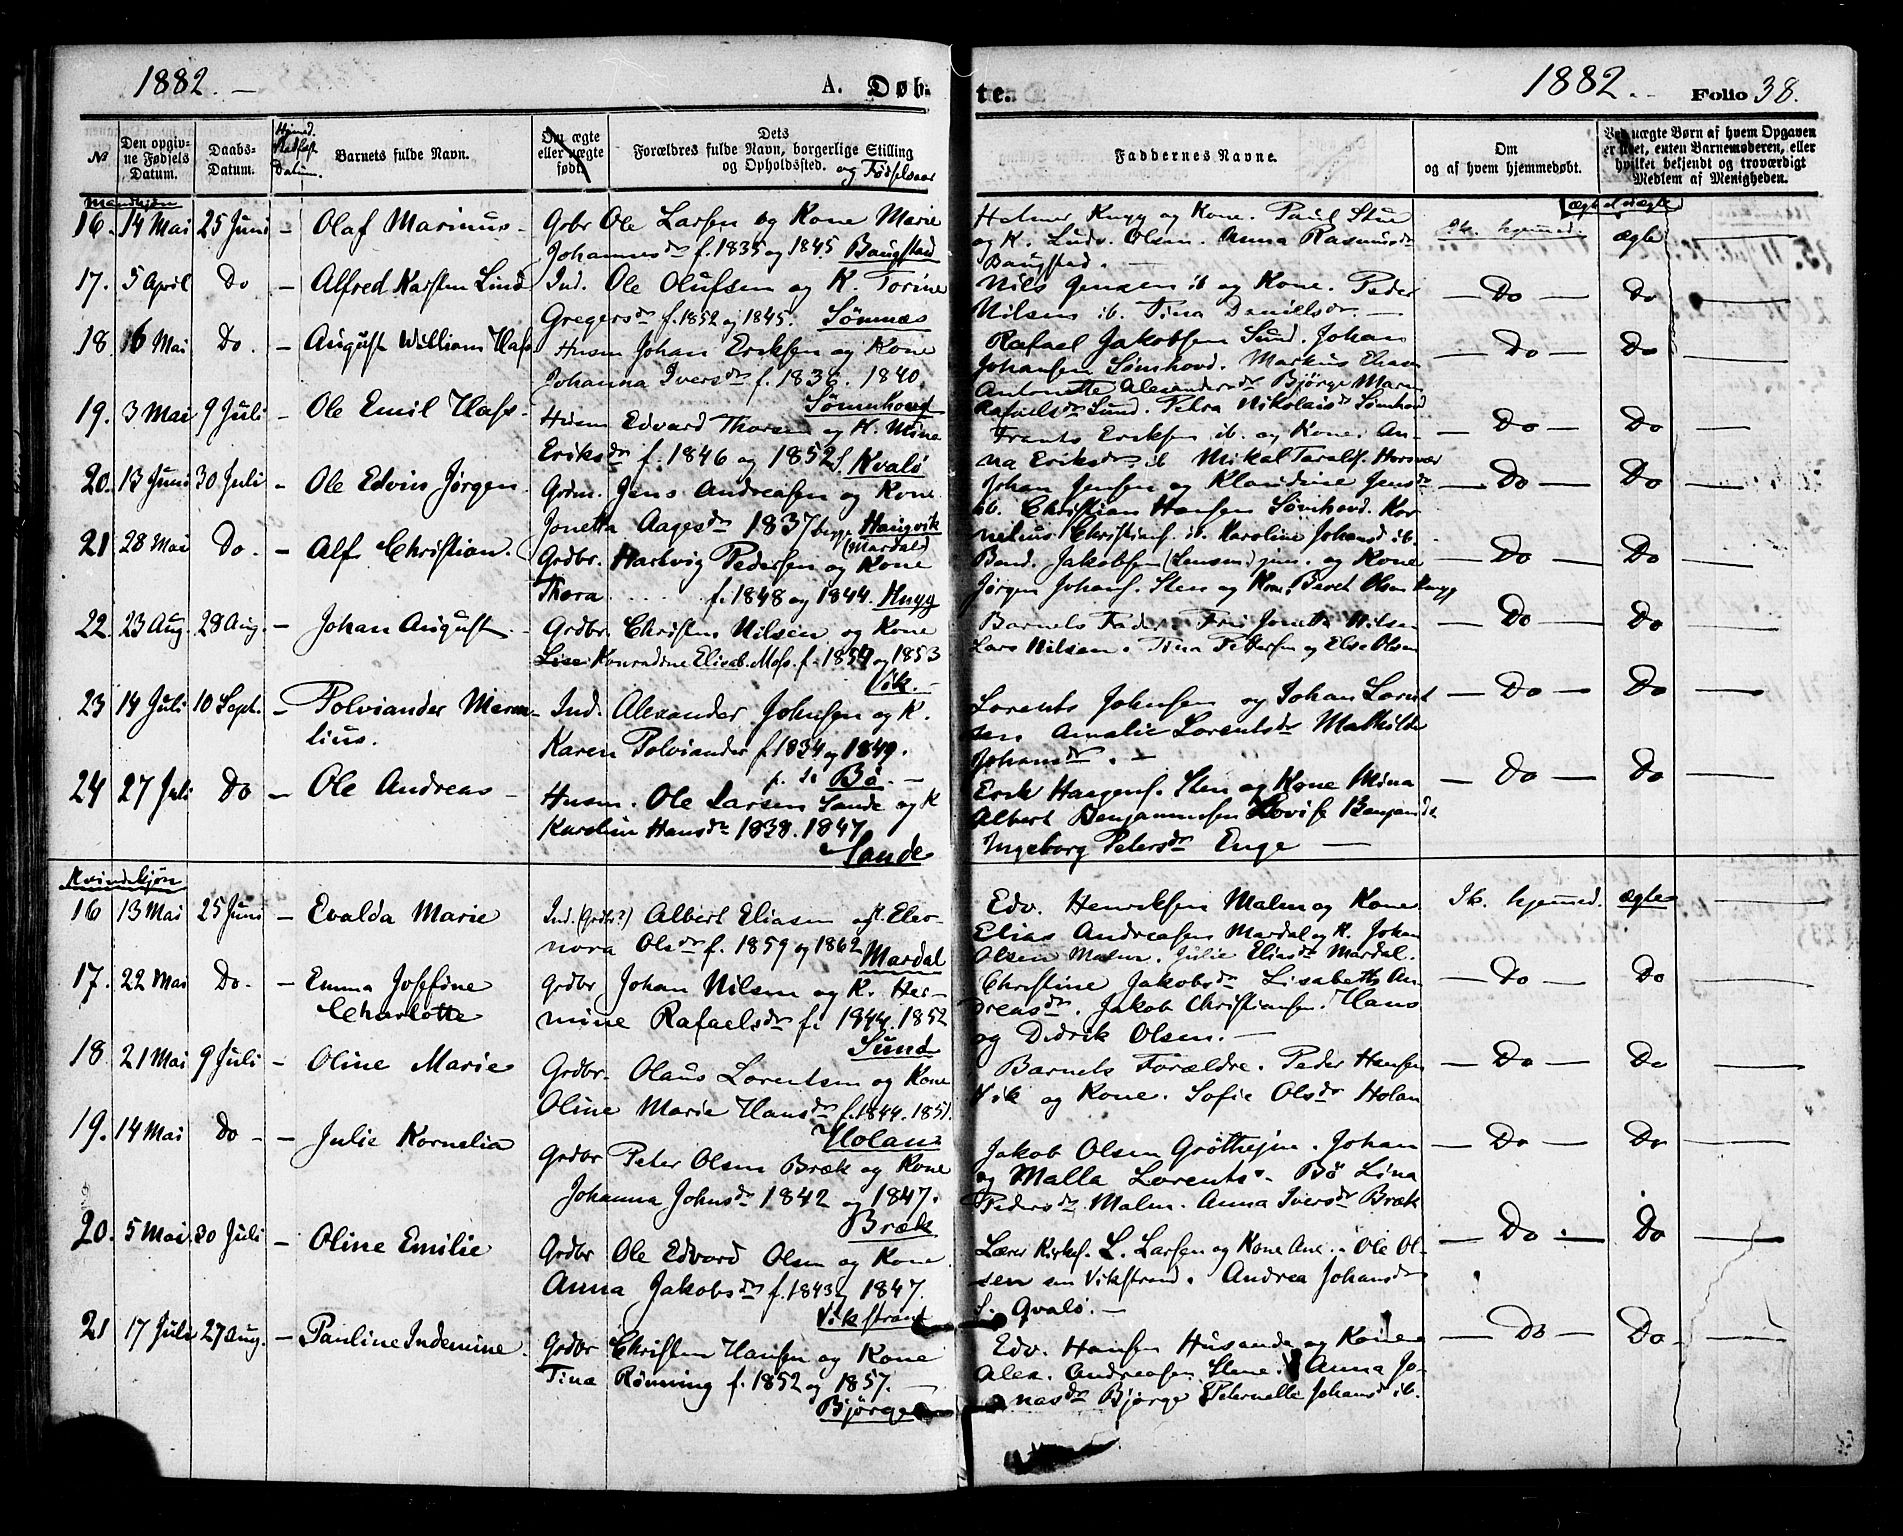 1882. —
A. Døb-
te.
1882. –
Folio 38.
№
Den opgiv-
ne Fødsels
Datum.
Daabs-
Datum.
Hjemd.
Stadfæst.
Datum.
Barnets fulde Navn.
Om ægte
eller uægte
født.
Dets
Forældres fulde Navn, borgerlige Stilling
og Opholdssted. og Fødselsaar
Faddernes Navne.
Om
og af hvem hjemmedøbt.
Ved uægte Børn af hvem Opgaven
er skeet, enten Barnemoderen, eller
hvilket bekjendt og troværdigt
Medlem af Menigheden.
Mandkjøn
ægte el. uægte
16. 14 Mai 25 Juni – Olaf Marinus
Grbr Ole Larsen og Kone Marie
Johannesdr f. 1835 og 1845 Baugstad
Holmer Knyg og Kone. Paul Stue
og K. Ludv. Olsen. Anna Rasmusdr
Baugstad. —
Ik. hjemmed. ægte
17. 5 April Do – Alfred Karsten Lind
Ind. Ole Olufsen og K. Torine
Gregersdr f. 1852 og 1845. Sømnæs
Nils Jensen ib og Kone. Peder
Nilsen ib. Tina Danielsdr. —
— Do — Do
18. 16 Mai Do. – August William
Husm Johan Eriksen og Kone
Johanna Iversdr f. 1836. 1840
Sømnhovd
Rafael Jakobsen Sund. Johan
Johansen Sømhovd. Markus
Antonette Alexandersdr Bjørge Maren
Rafaelsdr Sund. Petra Nikolaisdr Sømhovd
— Do — Do
19. 3 Mai 9 Juli – Ole Emil
Husm Edvard Thorsen og K. Mine
Eriksdr f. 1846 og 1852 S. Kvalø
Frants Eriksen ib. og Kone. An-
na Eriksdr ib Mikal Taralds. Horsvær
— Do — Do
20. 13 Juni 30 Juli – Ole Edvin Jørgen
Grdm. Jens Andreasen og Kone
Jonetta Aagesdr 1837 begge Haugvik
(Mardal)
Johan Jensen og Klaudine Jensdr
ib. Christian Hansen Sømhovd. Kor-
nelius Christians. ib. Karoline Johansd ib.
— Do — Do
21 28 Mai Do. – Alf Christian.
Grdbr. Hartvig Pedersen og Kone
Thora . . . . . f. 1848 og 1844. Knyg
Band. Jakobsen (Lensm) jun. og Kone
Jørgen Johans. Sten og Kone. Beret Olsen Knyg
— Do — Do
22. 23 Aug. 28 Aug. – Johan August.
Grdbr. Christen Nilsen og Kone
Lise Konradine Elisab. Moss. f. 1854 og 1853
Vik. —
Barnets Fader. Fru Jonetta Nilsen
Lars Nilsen. Tina Pedersen og Else Olsen
— Do — Do
23 14 Juli 10 Sept. – Polviander Meren-
lius.
Ind. Alexander Johnsen og K.
Karen Polviander f. 1834 og 1849.
Bø. —
Lorents Johnsen og Johan Lorent-
sen Amalie Lorentsdr Mathilde
Johansdr. —
— Do — Do
24 27 Juli Do – Ole Andreas –
Husm. Ole Larsen Sande og K
Karolin Hansdr 1838. 1847
Sande
Erik Haagens. Sten og Kone Mina
Albert Benjaminsen Lovise Benjamdr
Ingeborg Petersdr Enge —
— Do — Do
Kvindekjøn
16 13 Mai 25 Juni – Evalda Marie
Ind. (Grdbr?) Albert Eliasen og K. Eleo-
nora Olsdr f. 1859 og 1862 Mardal
Edv. Henriksen Malm og Kone
Elias Andreasen Mardal og K. Johan
Olsen Malm. Julie Eliasdr Mardal.
Ik. hjemmed. ægte
17. 22 Mai Do. – Emma Josefine
Charlotte
Grdbr Johan Nilsen og K. Her-
mine Rafaelsdr f. 1844. 1852
Sund
Christine Jakobsdr Lisabeth An-
dreasdr. Jakob Christiansen. Hans
og Didrik Olsen. —
— Do — Do
18 21 Mai 9 Juli – Oline Marie
Grdbr. Olaus Lorentsen og Kone
Oline Marie Hansdr f. 1844. 1851.
Holan
Barnets Forældre. Peder Hansen
Vik og Kone. Sofie Olsdr Holan
— Do — Do
19. 14 Mai Do – – Julie Kornelia
Grdbr Peter Olsen Bræk og Kone
Johanna Johnsdr 1842 og 1847.
Bræk
Jakob Olsen Grøttheim. Johan
og Malla Lorents. Bø Lina
Pedersdr Malm. Anna Iversdr Bræk
— Do — Do
20. 5 Mai 30 Juli – Oline Emilie
Grdbr Ole Edvard Olsen og Kone
Anna Jakobsdr f. 1843 og 1847.
Vikstrand
Lærer Kirkes. L. Larsen og Kone Ane. Ole Ol-
sen sen Vikstrand. Andrea Johansdr
S. Qvalø. —
— Do — Do
21 17 Juli 27 Aug. – Pauline Indemine.
Grdbr Christen Hansen og Kone
Tina Rønning f. 1852 og 1857. —
Bjørge
Edv. Hansen Husande og Kone
Alex. Andreasen Stene. Anna Jo-
nasdr Bjørge Peternelle Johansd ib.
— Do — Do